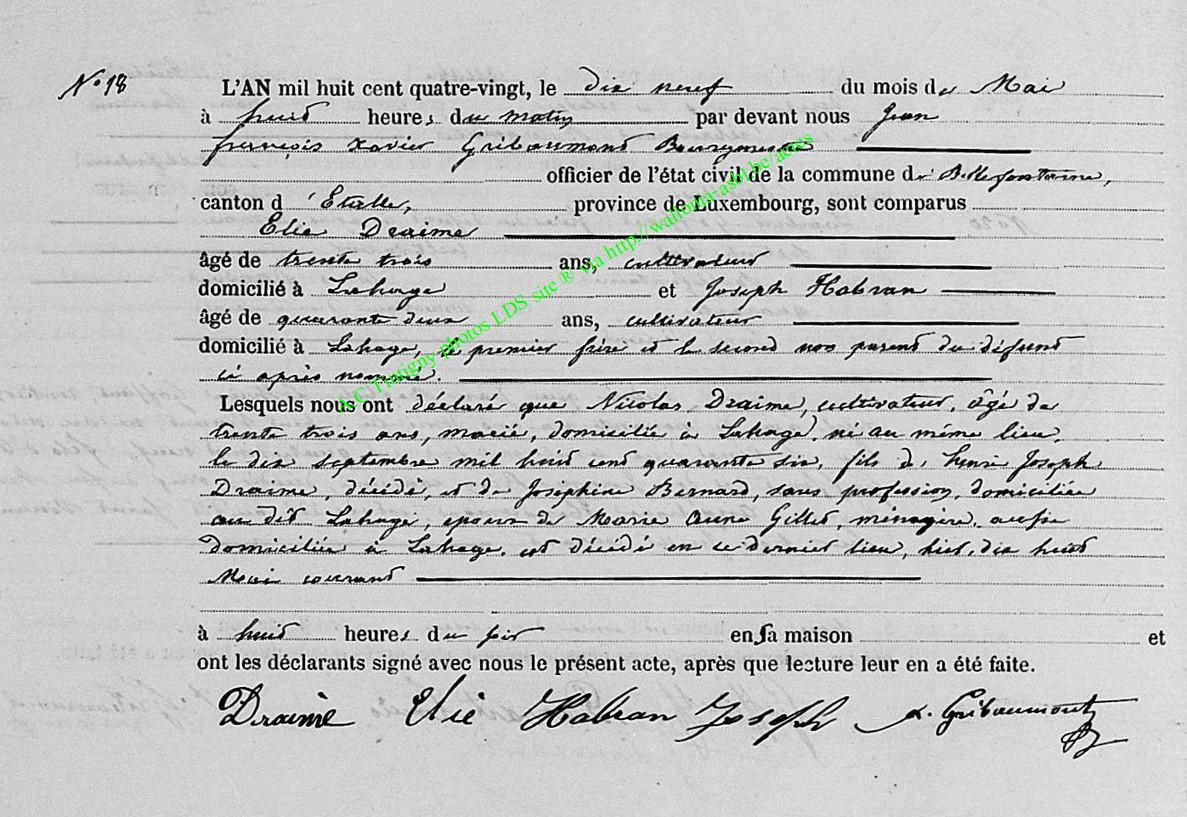 N° 18
L'AN mil huit cent quatre-vingt, le dix neuf du mois de Mai
à huit heures du matin par devant nous Jean
françois Xavier Gribaumont Bourgmestre
officier de l'état civil de la commune de Bellefontaine,
canton d'Etalle, province de Luxembourg, sont comparus
Elie Draime
âgé de trente trois ans, cultivateur
domicilié à Lahage et Joseph Habran
âgé de quarante deux ans, cultivateur
domicilié à Lahage, le premier frère et le second non parent du défunt
ci après nommé.
Lesquels nous ont déclaré que Nicolas Draime, cultivateur, âgé de
trente trois ans, marié, domicilié à Lahage, né au même lieu,
le dix septembre mil huit cent quarante six, fils de henri Joseph
Draime, décédé, et de Joséphine Bernard, sans profession, domiciliée
au dit Lahage, époux de Marie Anne Gillet, ménagère, aussi
domiciliée à Lahage, est décédé en ce dernier lieu, hier, dix huit
Mai courant
à huit heures du soir en sa maison et
ont les déclarants signé avec nous le présent acte, après que lecture leur en a été faite.
Draime Elie Habran Joseph x. Gribaumont
A.C. Tintigny photos LDS site ® via http://wallonia-asbl.be/actes